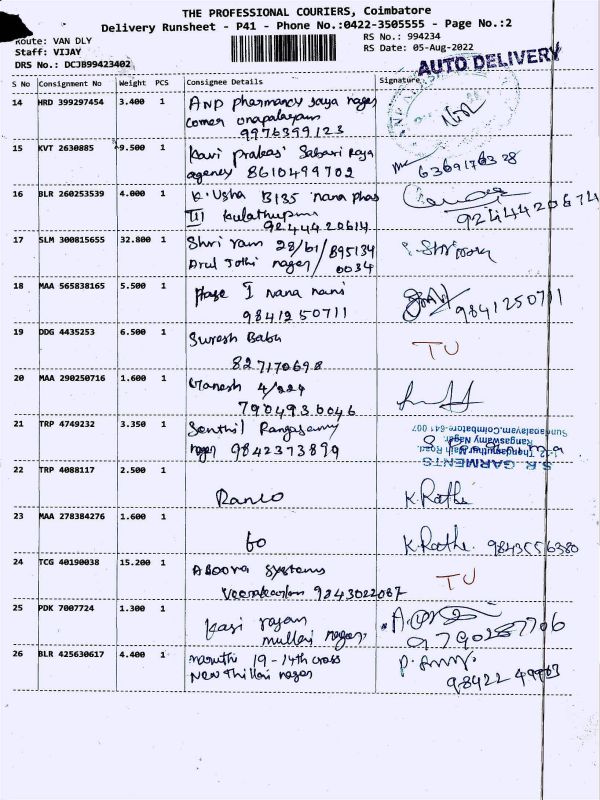 THE PROFESSIONAL COURIERS, Coimbatore
Delivery Runsheet - P41 - Phone No.:0422-3505555 - Page No.:2
Route: VAN DLY
RS No.: 994234
Staff: VIJAY
RS Date: 05-Aug-2022
DRS No.: DCJB99423402
AUTO DELIVERY
S No Consignment No Weight PCS Consignee Details Signature
14 HRD 399297454 3.400 1 AND pharmancy jaya nager
corner onapalayam
9976399123
15 KVT 2630885 9.500 1 Kavi prakas Sabari Raja
agency 8610499702
63691763 28
16 BLR 260253539 4.000 1 K. Usha B135 nana phas
III kulathupuni
9244420614
9244420674
17 SLM 300815655 32.800 1 Shri ram 28/61/895134
Arul Jothi nager/0034
18 MAA 565838165 5.500 1 phase I nana nani
9841250711
9841250711
19 DDG 4435253 6.500 1 Suresh Babu TU
827170698
20 MAA 290250716 1.600 1 Ganesh 4/229
7904930046
21 TRP 4749232 3.350 1 Senthil Rangasamy
nager 9842373899
S.R. GARMENTS
Thondamuthur Main Road,
Rangaswamy Nagar,
Sundapalayam, Coimbatore-641 007
22 TRP 4088117 2.500 1
Ranco K. Rathe
23 MAA 278384276 1.600 1
to K. Rathe. 9843556380
24 TCG 40190038 15.200 1 Aboora Systems TU
Veerakeralam 9243022067
25 PDK 7007724 1.300 1 Kasi rajan
mullai nager,
9790287706
26 BLR 425630617 4.400 1 maruthi 19-14th cross
New Thillai nager
98422 49963